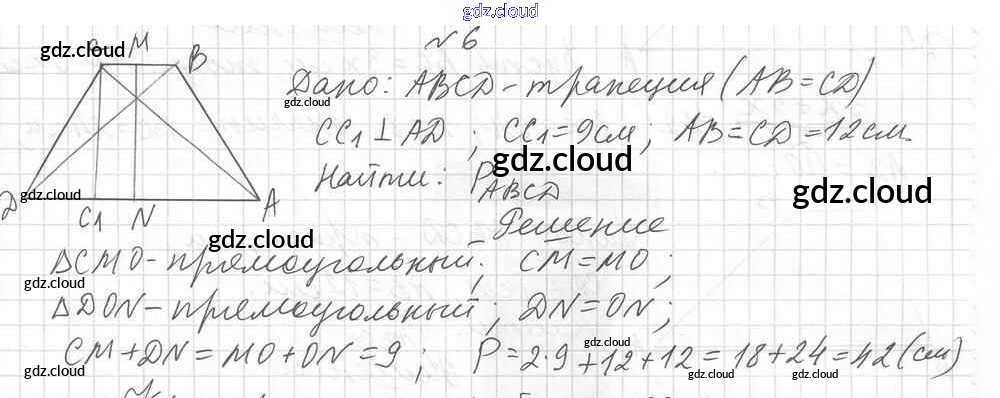 gdz.cloud
№ 6
gdz.cloud
M B
Дано: ABCD - трапеция (AB = CD)
gdz.cloud
CC1 ⊥ AD ; CC1 = 9 см ; AB = CD = 12 см.
gdz.cloud
Найти: P ABCD
gdz.cloud
gdz.cloud
D C1 N A
Решение
gdz.cloud
ΔCMO - прямоугольный ; CM = MO ;
gdz.cloud
ΔDON - прямоугольный ; DN = ON ;
gdz.cloud
CM + DN = MO + ON = 9 ; P = 2·9 + 12 + 12 = 18 + 24 = 42 (см)
gdz.cloud gdz.cloud gdz.cloud